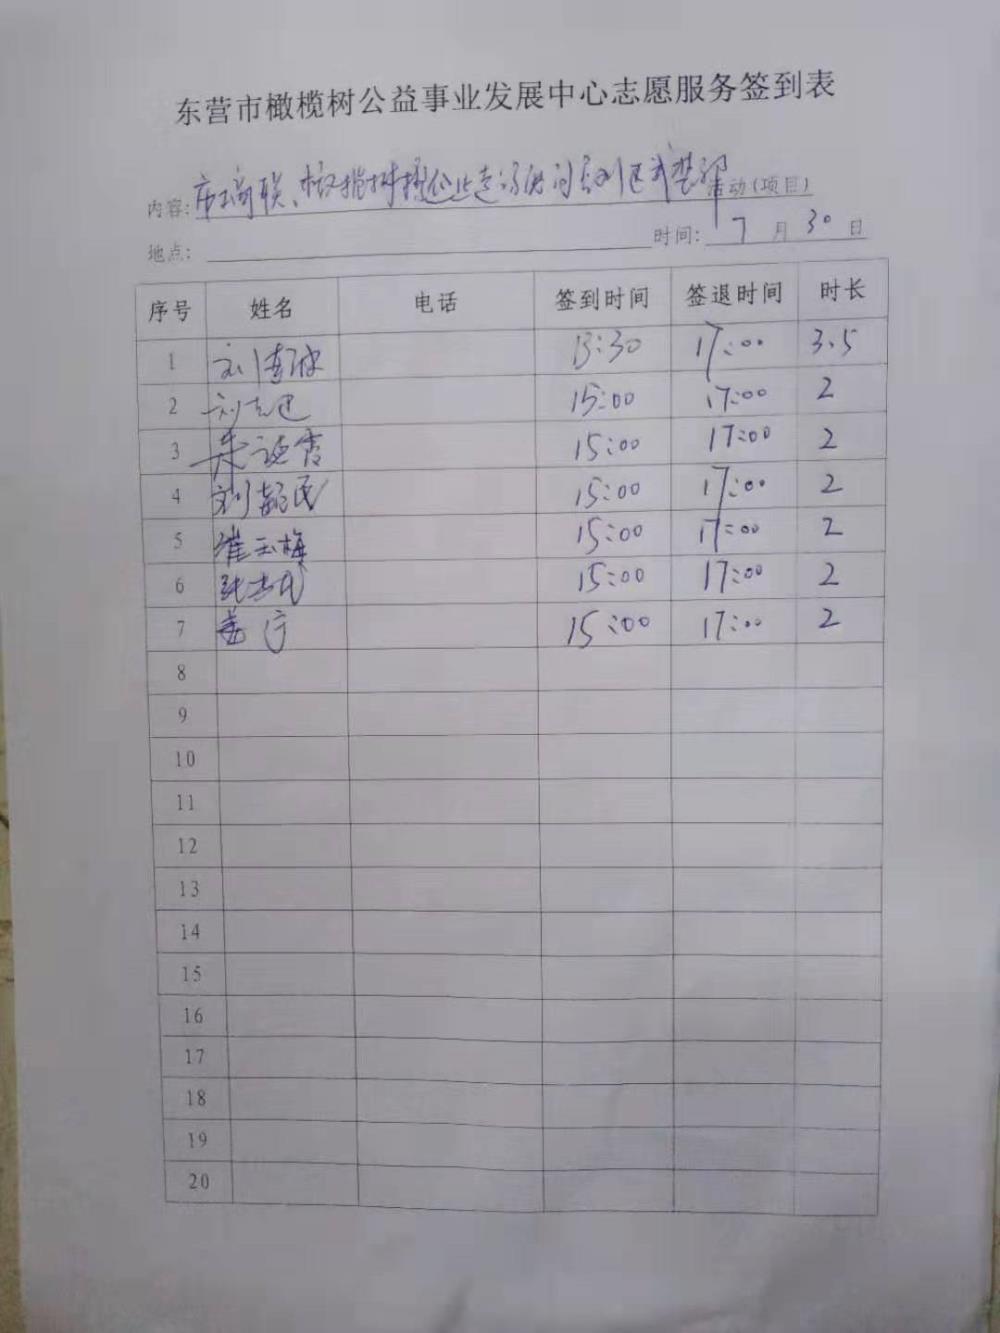 东营市橄榄树公益事业发展中心志愿服务签到表
内容: 市商联、橄榄树 活动(项目)
地点: 时间: 7 月 30 日
序号 姓名 电话 签到时间 签退时间 时长
1 刘 13:30 17:00 3.5
2 刘志 15:00 17:00 2
3 朱 15:00 17:00 2
4 刘 民 15:00 17:00 2
5 崔玉梅 15:00 17:00 2
6 张 15:00 17:00 2
7 15:00 17:00 2
8
9
10
11
12
13
14
15
16
17
18
19
20